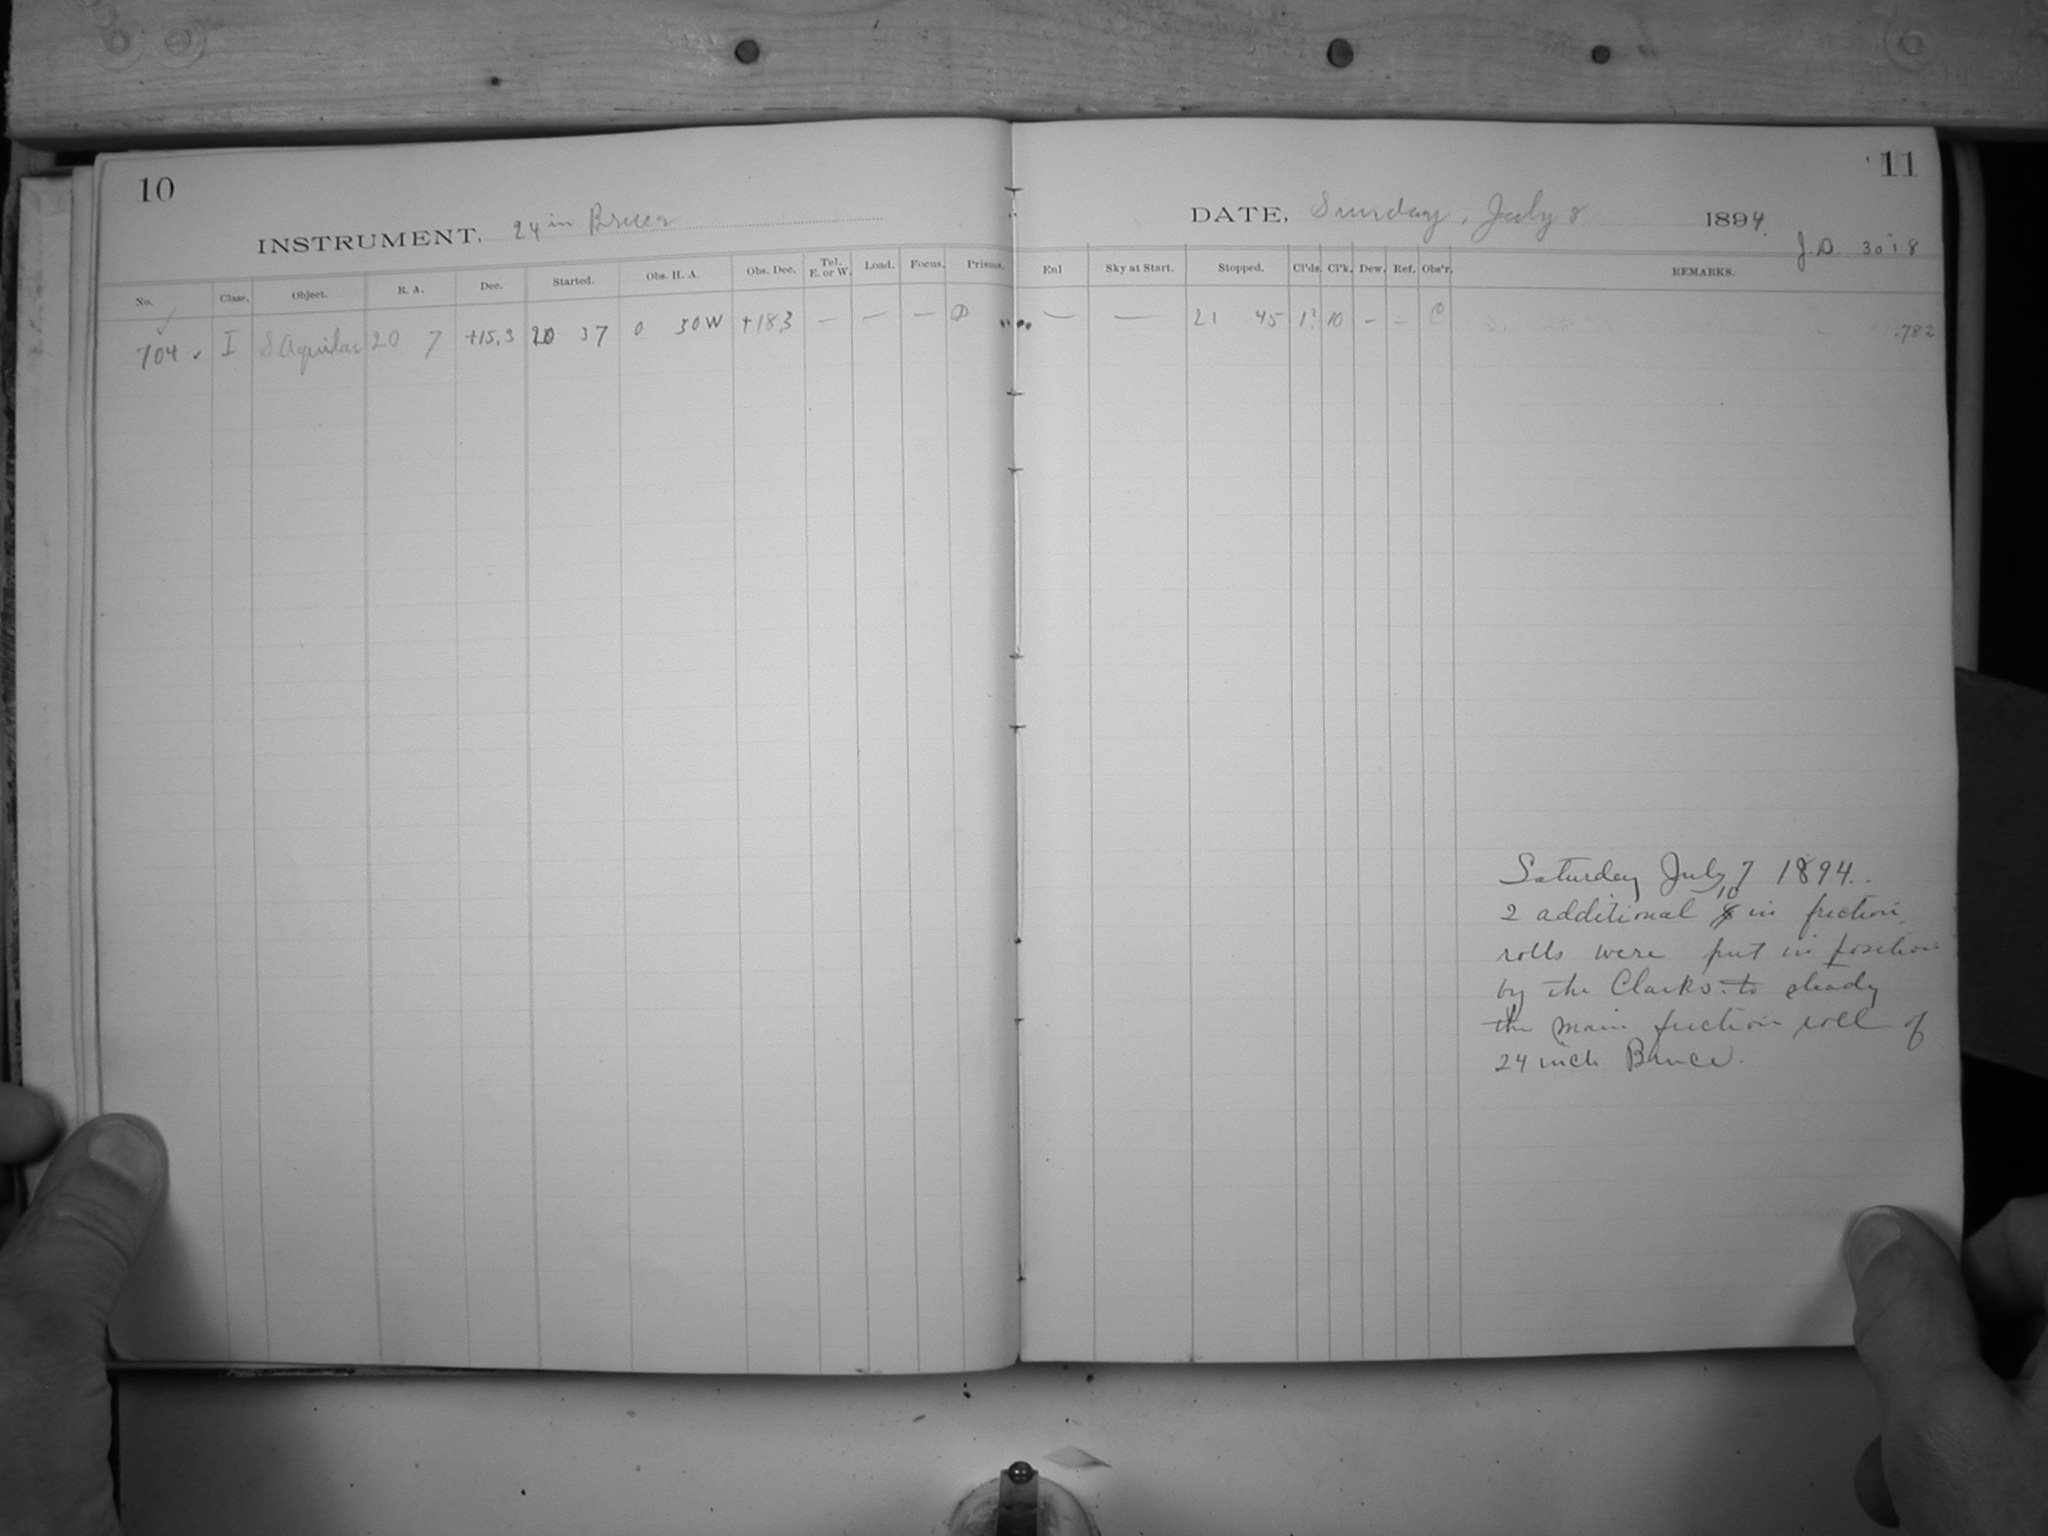 10
INSTRUMENT, 24 in Bruce
No. Class. Object. R. A. Dec. Started. Obs. H. A. Obs. Dec. Tel. E. or W. Load. Focus. Prisms.
704 I S Aquilae 20 7 +15.3 20 37 0 30 W +183 — — — D
11
DATE, Sunday, July 8 1894.
J.D. 3018
Enl Sky at Start. Stopped. Cl'ds. Cl'k. Dew. Ref. Obs'r. REMARKS.
— — 21 45 1? 10 – – C .782
Saturday July 7 1894.
2 additional 10 in friction
rolls were put in position
by the Clarks to steady
the main friction roll of
24 inch Bruce.